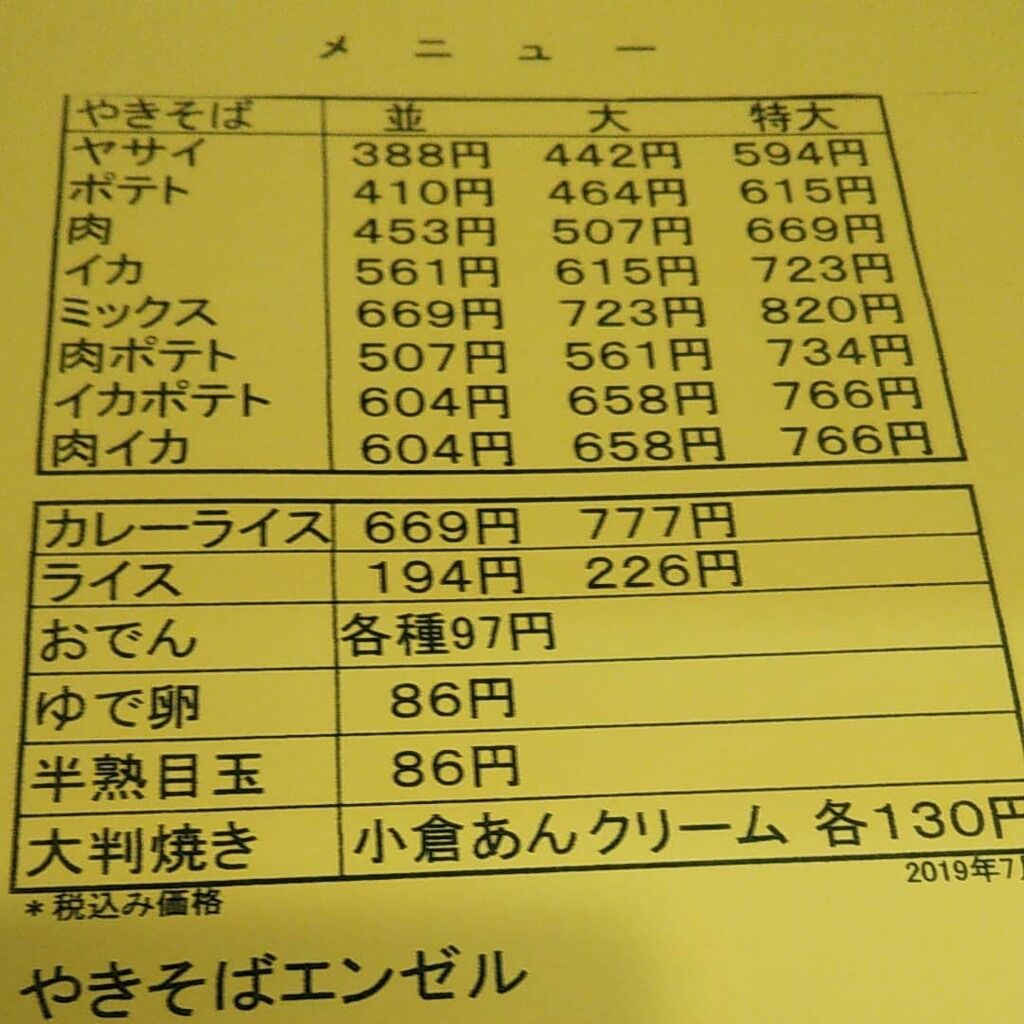 メニュー
やきそば 並 大 特大
ヤサイ 388円 442円 594円
ポテト 410円 464円 615円
肉 453円 507円 669円
イカ 561円 615円 723円
ミックス 669円 723円 820円
肉ポテト 507円 561円 734円
イカポテト 604円 658円 766円
肉イカ 604円 658円 766円
カレーライス 669円 777円
ライス 194円 226円
おでん 各種97円
ゆで卵 86円
半熟目玉 86円
大判焼き 小倉あんクリーム 各130円
2019年7月
*税込み価格
やきそばエンゼル